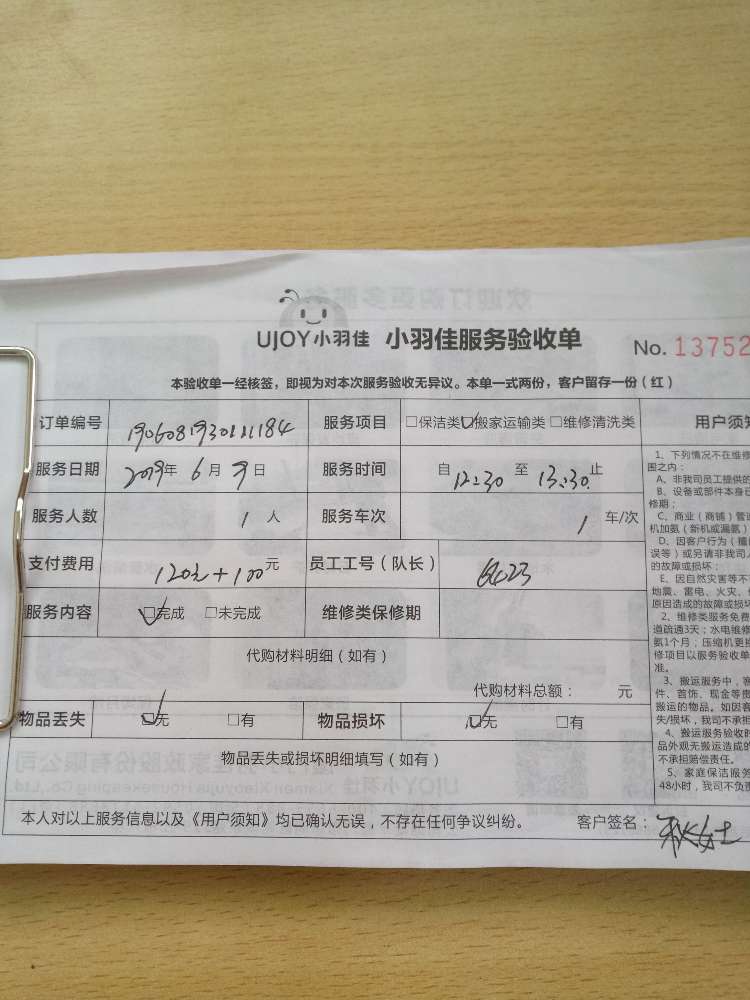 UJOY小羽佳 小羽佳服务验收单 No. 13752
本验收单一经核签，即视为对本次服务验收无异议。本单一式两份，客户留存一份（红）
订单编号 服务项目 □保洁类☑搬家运输类□维修清洗类 用户须知
服务日期 2019年 6月 9日 服务时间 自 12:30 至 13:30 止
服务人数 1 人 服务车次 1 车/次
支付费用 120元+100元 员工工号（队长）
服务内容 ☑完成 □未完成 维修类保修期
代购材料明细（如有）
代购材料总额： 元
物品丢失 ☑无 □有 物品损坏 ☑无 □有
物品丢失或损坏明细填写（如有）
本人对以上服务信息以及《用户须知》均已确认无误，不存在任何争议纠纷。 客户签名： 女士
1、下列情况不在维修
围之内：
A、非我司员工提供的
B、设备或部件本身已
修期；
C、商业（商铺）管道
机加氨（新机或漏氨）
D、因客户行为（撞
误等）或另请非我司
的故障或损坏；
E、因自然灾害等不
地震、雷电、火灾、
原因造成的故障或损坏
2、维修类服务免费
道疏通3天；水电维修
氨1个月；压缩机更换
修项目以服务验收单
准。
3、搬运服务中，客
件、首饰、现金等贵
搬运的物品。如因客
失/损坏，我司不承担
4、搬运服务验收时
品外观无搬运造成的
不承担赔偿责任。
5、家庭保洁服务
48小时，我司不负责